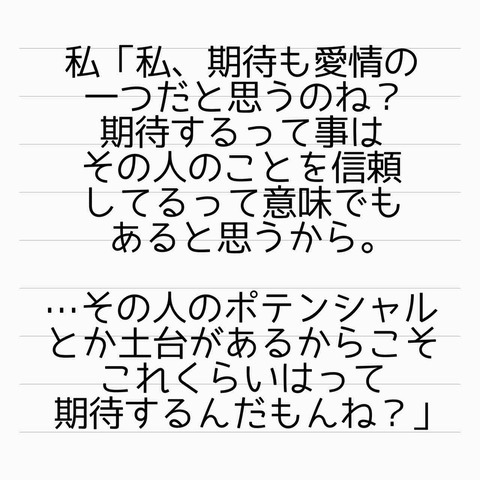 私「私、期待も愛情の
一つだと思うのね？
期待するって事は
その人のことを信頼
してるって意味でも
あると思うから。
…その人のポテンシャル
とか土台があるからこそ
これくらいはって
期待するんだもんね？」